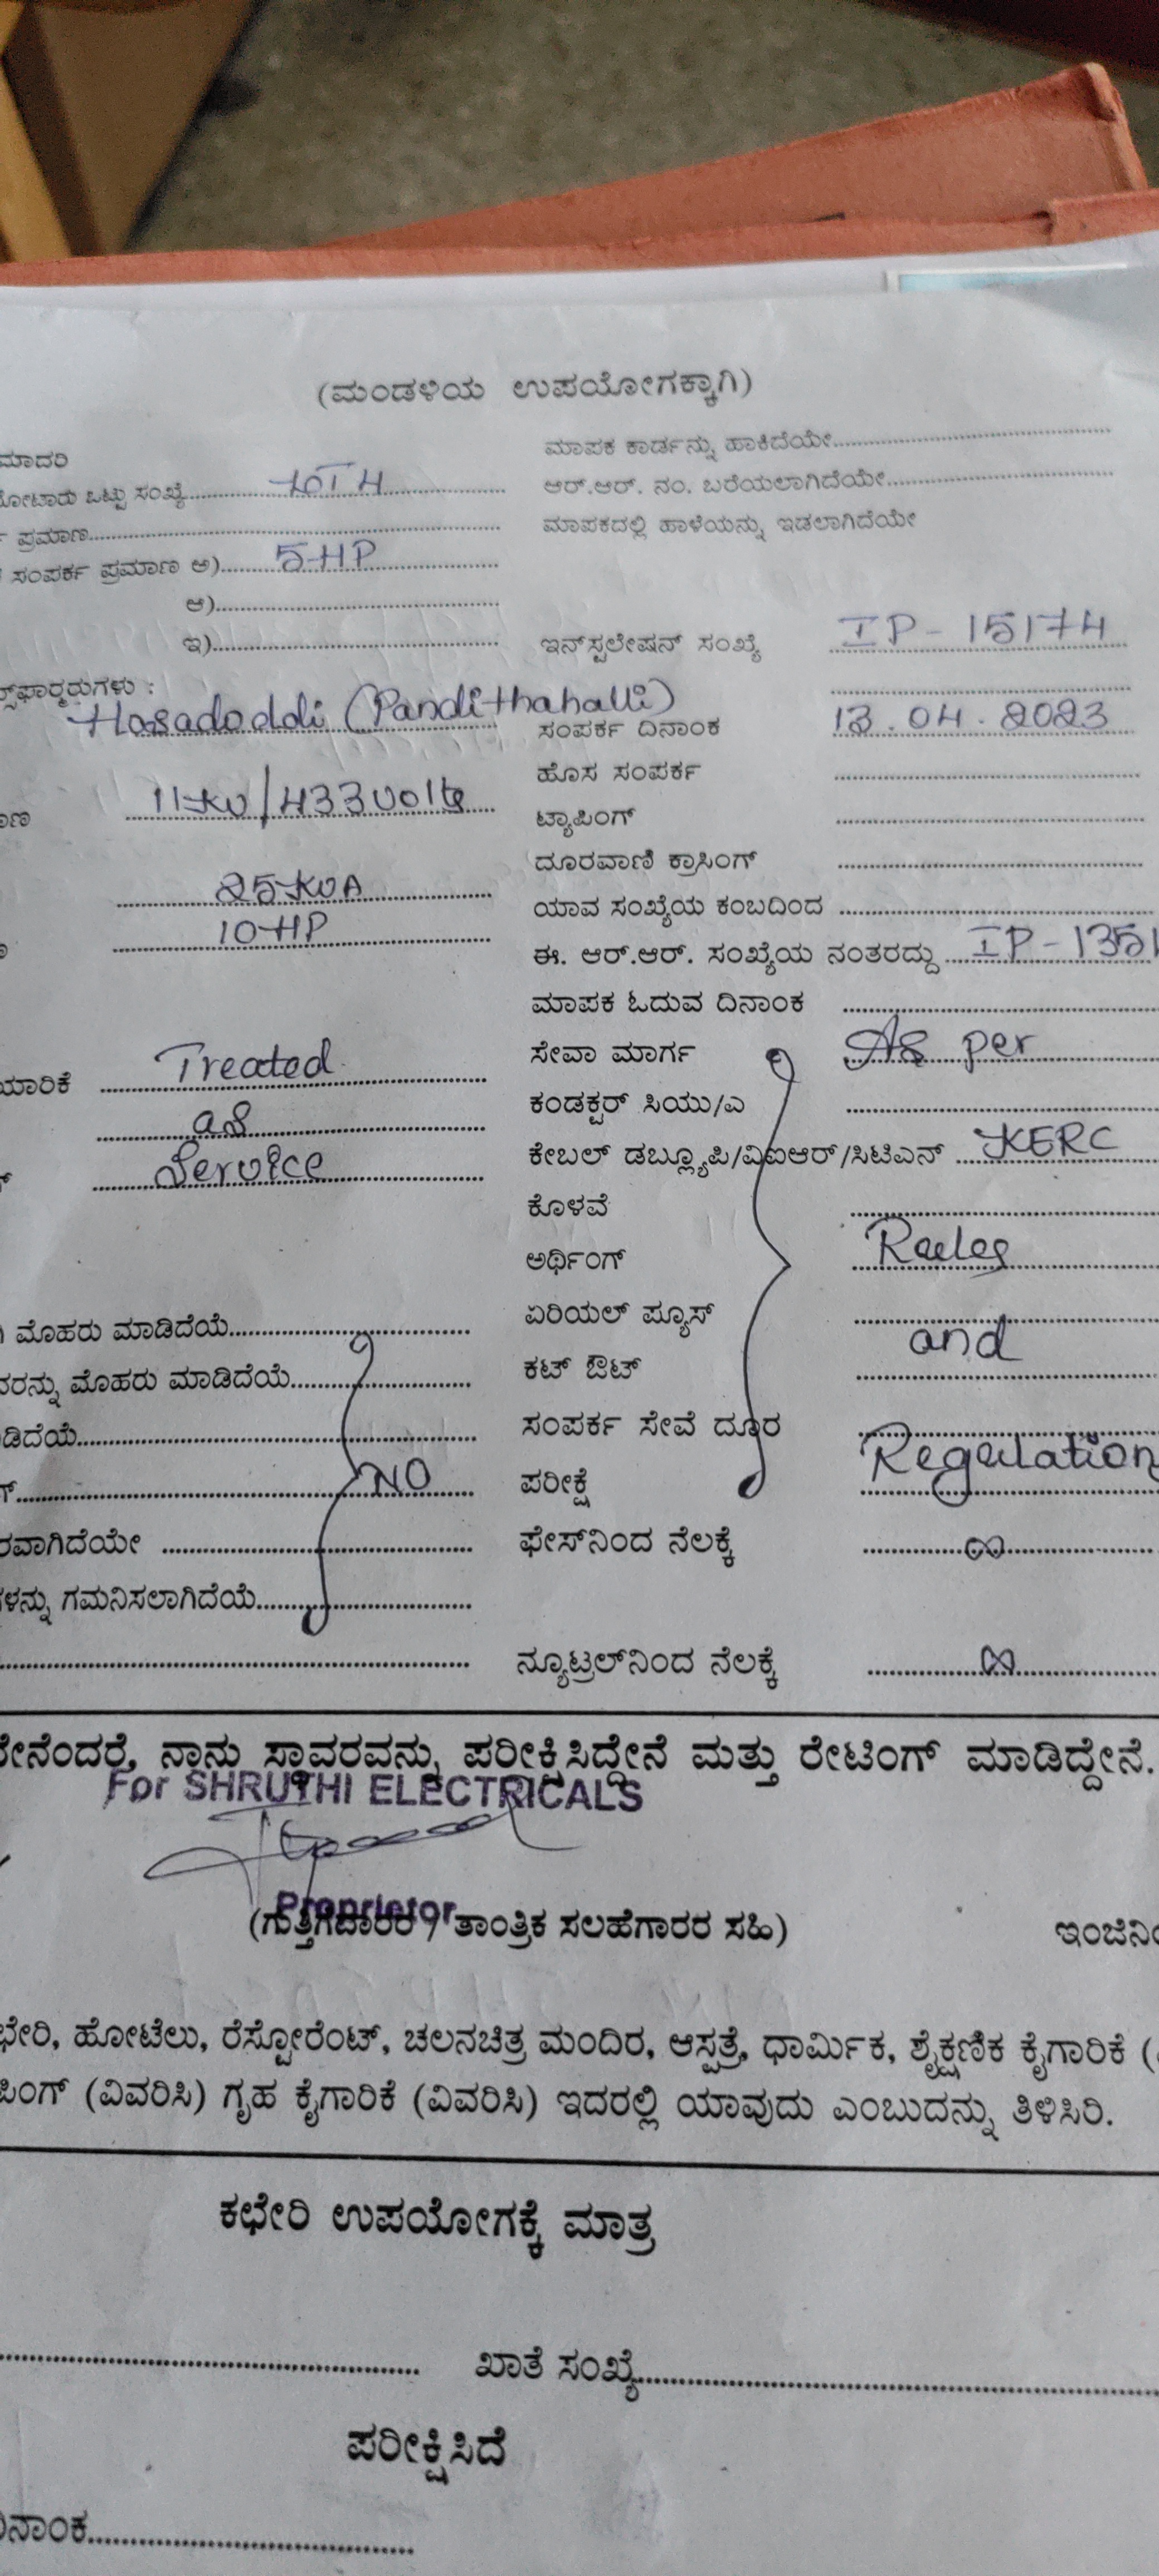 (ಮಂಡಳಿಯ ಉಪಯೋಗಕ್ಕಾಗಿ)
ಮಾದರಿ
ಮಾಪಕ ಕಾರ್ಡನ್ನು ಹಾಕಿದೆಯೇ
ಮೋಟಾರು ಒಟ್ಟು ಸಂಖ್ಯೆ
ಆರ್.ಆರ್. ನಂ. ಬರೆಯಲಾಗಿದೆಯೇ
ಪ್ರಮಾಣ
ಮಾಪಕದಲ್ಲಿ ಹಾಳೆಯನ್ನು ಇಡಲಾಗಿದೆಯೇ
ಸಂಪರ್ಕ ಪ್ರಮಾಣ ಅ) 5HP
ಆ)
ಇ)
ಇನ್‌ಸ್ಟಲೇಷನ್ ಸಂಖ್ಯೆ IP-15174
ನ್ಸ್‌ಫಾರ್ಮರುಗಳು :
Hosadoddi (Pandithahalli)
ಸಂಪರ್ಕ ದಿನಾಂಕ 13.04.2023
ಹೊಸ ಸಂಪರ್ಕ
11KV/433Volts
ಟ್ಯಾಪಿಂಗ್
ದೂರವಾಣಿ ಕ್ರಾಸಿಂಗ್
25KVA
ಯಾವ ಸಂಖ್ಯೆಯ ಕಂಬದಿಂದ
10HP
ಈ. ಆರ್.ಆರ್. ಸಂಖ್ಯೆಯ ನಂತರದ್ದು IP-1351
ಮಾಪಕ ಓದುವ ದಿನಾಂಕ
ಯಾರಿಕೆ Treated
ಸೇವಾ ಮಾರ್ಗ As per
as
ಕಂಡಕ್ಟರ್ ಸಿಯು/ಎ
Service
ಕೇಬಲ್ ಡಬ್ಲ್ಯೂಪಿ/ವಿಐಆರ್/ಸಿಟಿಎನ್ KERC
ಕೊಳವೆ
ಅರ್ಥಿಂಗ್ Rules
ಮೊಹರು ಮಾಡಿದೆಯೆ
ಏರಿಯಲ್ ಫ್ಯೂಸ್
and
ವರನ್ನು ಮೊಹರು ಮಾಡಿದೆಯೆ
ಕಟ್ ಔಟ್
ಡಿದೆಯೆ
ಸಂಪರ್ಕ ಸೇವೆ ದೂರ
NO
ಪರೀಕ್ಷೆ Regulation
ರವಾಗಿದೆಯೇ
ಫೇಸ್‌ನಿಂದ ನೆಲಕ್ಕೆ ∞
ಗಳನ್ನು ಗಮನಿಸಲಾಗಿದೆಯೆ
ನ್ಯೂಟ್ರಲ್‌ನಿಂದ ನೆಲಕ್ಕೆ ∞
ನೇನೆಂದರೆ, ನಾನು ಸ್ಥಾವರವನ್ನು ಪರೀಕ್ಷಿಸಿದ್ದೇನೆ ಮತ್ತು ರೇಟಿಂಗ್ ಮಾಡಿದ್ದೇನೆ.
For SHRUTHI ELECTRICALS
Proprietor
(ಗುತ್ತಿಗೆದಾರರ / ತಾಂತ್ರಿಕ ಸಲಹೆಗಾರರ ಸಹಿ)
ಇಂಜಿನಿ
ಛೇರಿ, ಹೋಟೆಲು, ರೆಸ್ಟೋರೆಂಟ್, ಚಲನಚಿತ್ರ ಮಂದಿರ, ಆಸ್ಪತ್ರೆ, ಧಾರ್ಮಿಕ, ಶೈಕ್ಷಣಿಕ ಕೈಗಾರಿಕೆ (
ಪಿಂಗ್ (ವಿವರಿಸಿ) ಗೃಹ ಕೈಗಾರಿಕೆ (ವಿವರಿಸಿ) ಇದರಲ್ಲಿ ಯಾವುದು ಎಂಬುದನ್ನು ತಿಳಿಸಿರಿ.
ಕಛೇರಿ ಉಪಯೋಗಕ್ಕೆ ಮಾತ್ರ
ಖಾತೆ ಸಂಖ್ಯೆ
ಪರೀಕ್ಷಿಸಿದೆ
ದಿನಾಂಕ